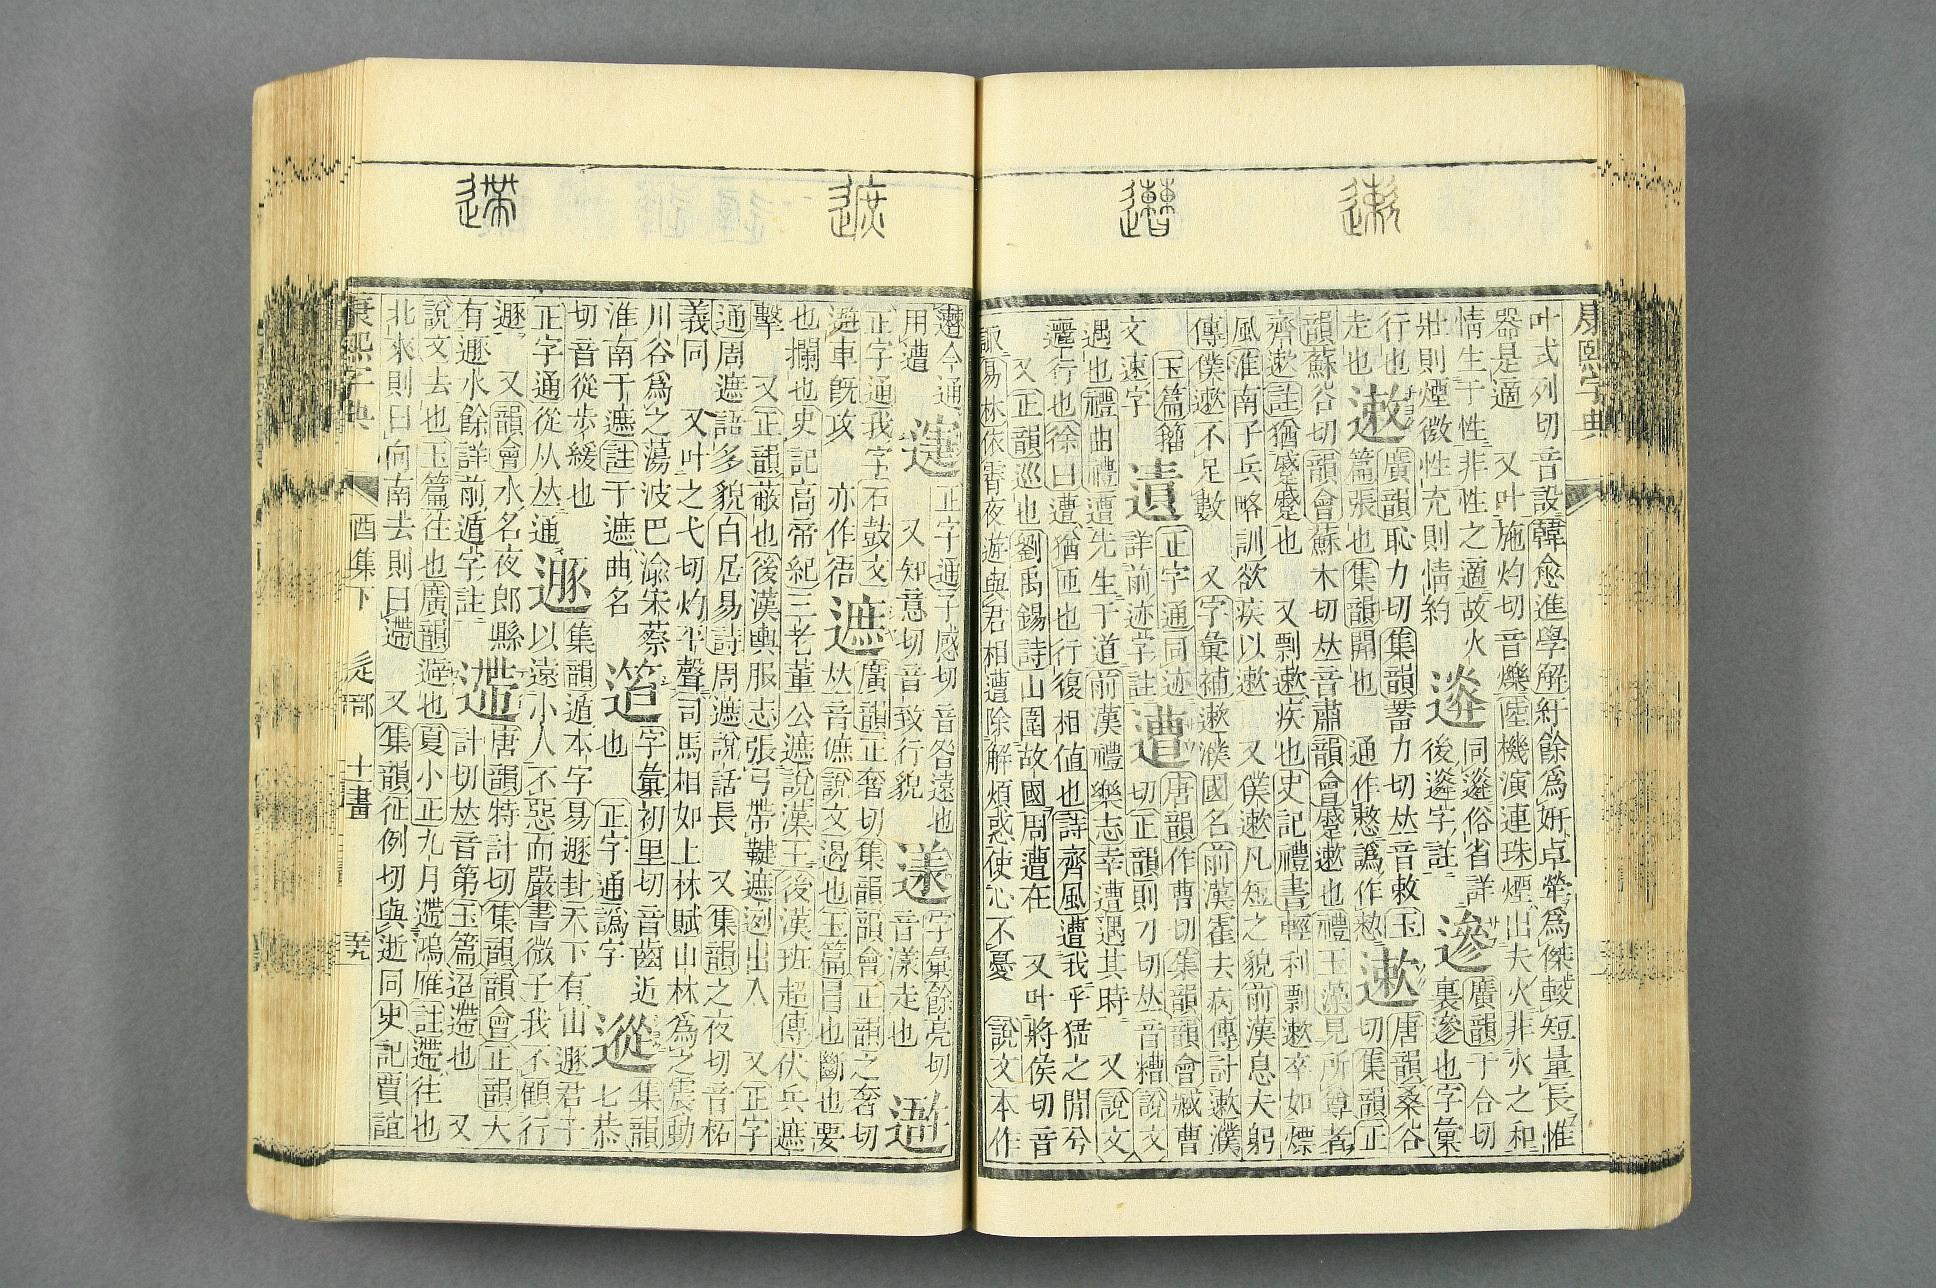 遬
遭
遮
遰
康熙字典
叶式列切音設韓愈進學解紆餘爲妍卓犖爲傑較短量長惟
器是適 又叶施灼切音爍陸機演連珠煙出夫火非火之和
情生于性非性之適故火
壯則煙微性充則情約
俗省詳
後 字註
廣韻于合切
行也
裏 也字彙
走也
廣韻恥力切集韻蓄力切𠀤音敕玉
篇張也集韻開也 通作憗譌作愸
遬
唐韻桑谷
切集韻正
韻蘇谷切韻會蘇木切𠀤音肅韻會蹙遬也禮玉藻見所尊者
齊遬註猶蹙蹙也 又剽遬疾也史記禮書輕利剽遬卒如熛
風淮南子兵略訓欲疾以遬 又僕遬凡短之貌前漢息夫躬
傳僕遬不足數 又字彙補遬濮國名前漢霍去病傳討遬濮
玉篇籀
文速字
正字通同迹
詳前迹字註
遭
唐韻作曹切集韻韻會臧曹
切正韻則刀切𠀤音糟說文
遇也禮曲禮遭先生于道前漢禮樂志幸遭遇其時 又說文
邐行也徐曰遭猶匝也行復相值也詩齊風遭我乎猺之閒兮
又正韻巡也劉禹錫詩山圍故國周遭在 又叶將侯切音
諏易林依霄夜遊與君相遭除解煩惑使心不憂 說文本作
今通
用遭
正字通子感切音昝遠也
又知意切音致行貌
字彙餘亮切
音漾走也
正字通我字石鼓文
遊車旣攻 亦作
遮
廣韻正奢切集韻韻會正韻之奢切
說文遏也玉篇冒也斷也要
也攔也史記高帝紀三老董公遮說漢王後漢班超傳伏兵遮
擊 又正韻蔽也後漢輿服志張弓帶鞬遮迾出入 又正字
通周遮語多貌白居易詩周遮說話長 又集韻之夜切音柘
義同 又叶之戈切灼平聲司馬相如上林賦山林爲之震動
川谷爲之蕩波巴渝宋蔡
淮南于遮註于遮曲名
字彙初里切音齒近
也 正字通譌字
集韻
七恭
切音從步緩也
正字通從从𠀤通
遯
集韻遁本字易遯封天下有山遯君子
以遠小人不惡而嚴書微子我不顧行
遯 又韻會水名夜郎縣
有遯水餘詳前遁字註
遰
唐韻特計切集韻韻會正韻大
計切𠀤音第玉篇迢遰也 又
說文去也玉篇往也廣韻遊也夏小正九月遰鴻雁註遰往也
北來則曰向南去則曰遰 又集韻征例切與逝同史記賈誼
康熙字典 酉集下 辵部 十一畫